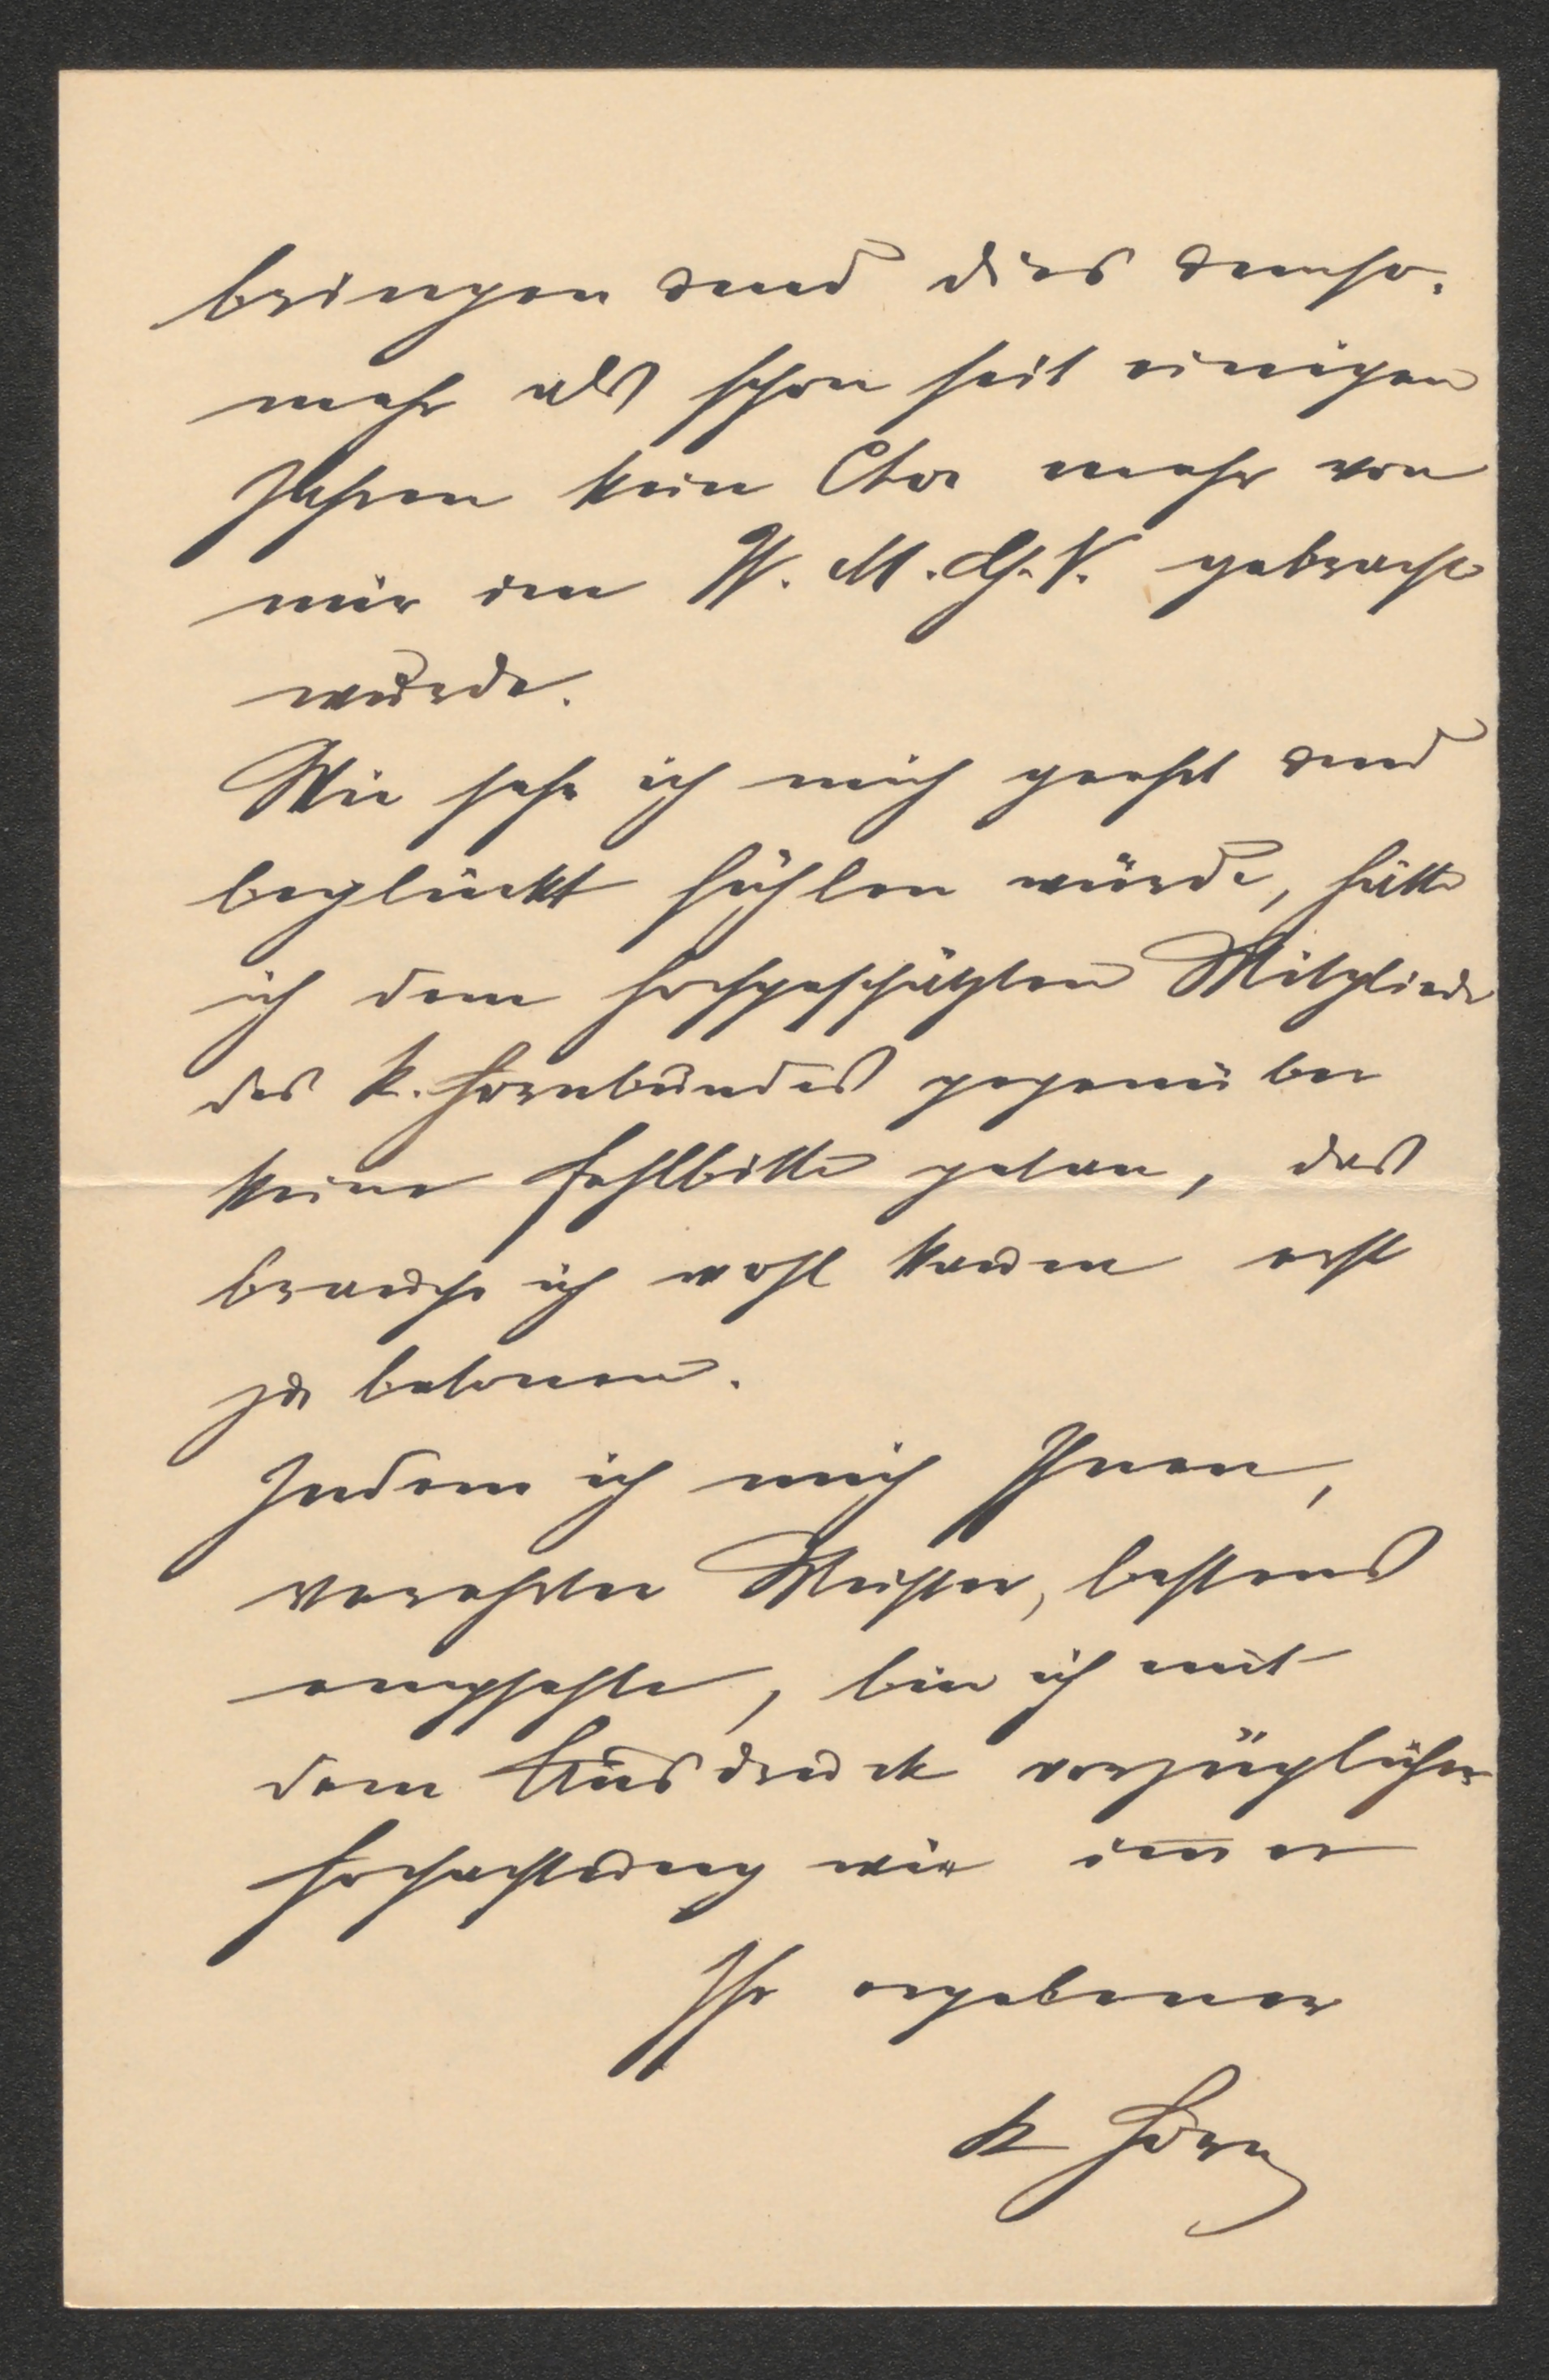 bringen und dies umso-
mehr als schon seit einigen
Jahren kein Chor mehr von
mir im W. M. G. V. gebracht
wurde.
Wie sehr ich mich geehrt und
beglückt fühlen würde, hätte
ich dem hochgeschätzten Mitgliede
des K. Hornbundes gegenüber
keine Fehlbitte getan, das
brauche ich wohl kaum erst
zu betonen.
Indem ich mich Ihnen,
verehrter Meister, bestens
empfehle, bin ich mit
dem Ausdruck vorzüglicher
Hochachtung wie im̅er
Ihr ergebener
K Horn